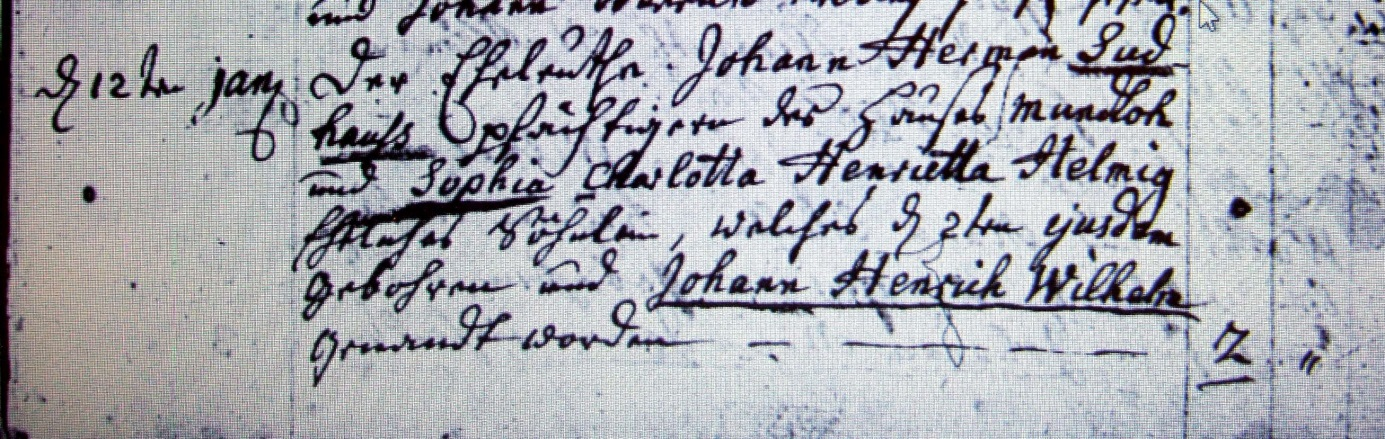 und Johann
d 12ten janr Der Eheleuthe Johann Herman Sud
hauss pfächtigern des Hauses Mundloh
und Sophia Charlotta Henrietta Helmig
Eheliches Söhnlein, welches d 2ten ejusdem
gebohren und Johann Henrich Wilhelm
genandt worden — — — — 2 "